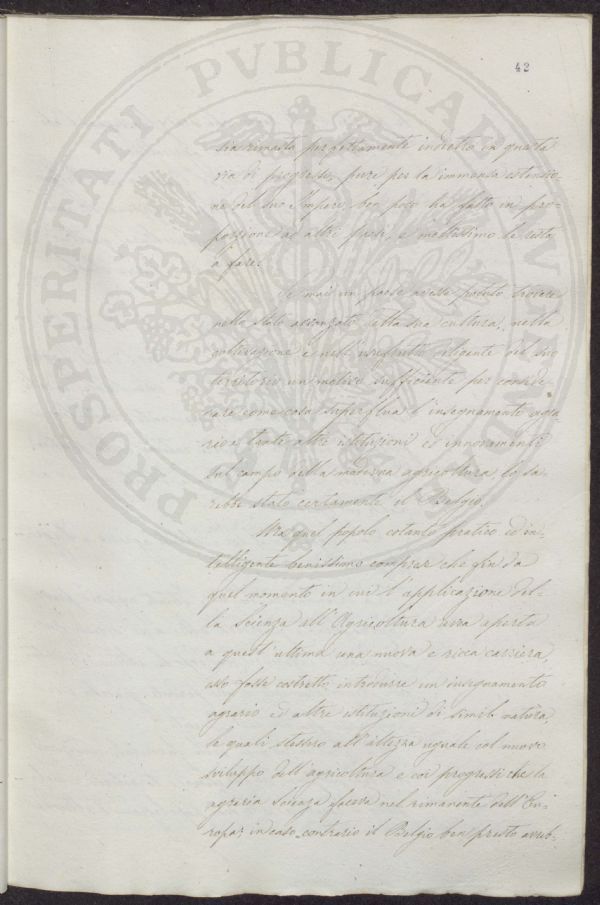 42
PROSPERITATI PVBLICAE
sia rimasto perfettamente indietro in questa
via di progresso, pure per la immensa estensio-
ne del suo Impero, ben poco ha fatto in pro-
porzione ad altri paesi, e moltissimo le resta
a fare.
Se mai un paese avesse potuto trovare
nello stato avanzato della sua cultura, nella
coltivazione e nell'usufrutto diligente del suo
territorio un motivo sufficiente per conside-
rare come cosa superflua l'insegnamento agra-
rio e tante altre istituzioni ed innovamenti
sul campo della moderna agricoltura, lo sa-
rebbe stato certamente il Belgio.
Ma quel popolo cotanto pratico ed in-
telligente benissimo comprese che fin da
quel momento in cui l'applicazione del-
la Scienza all'Agricoltura avea aperta
a quest'ultima una nuova e ricca carriera,
esso fosse costretto introdurre un insegnamento
agrario ed altre istituzioni di simile natura,
le quali stessero all'altezza uguale col nuovo
sviluppo dell'agricoltura e coi progressi che la
agraria Scienza faceva nel rimanente dell'Eu-
ropa; in caso contrario il Belgio ben presto avreb-